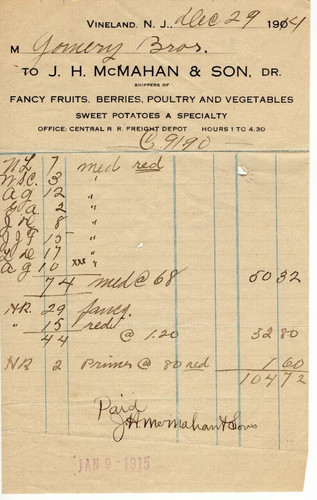 VINELAND, N. J., Dec 29 1904
M Gomery Bros.
TO J. H. McMAHAN & SON, DR.
SHIPPERS OF
FANCY FRUITS, BERRIES, POULTRY AND VEGETABLES
SWEET POTATOES A SPECIALTY
OFFICE: CENTRAL R. R. FREIGHT DEPOT HOURS 1 TO 4.30
9190
NL 7 med red
WSC 3 "
A G 12 "
A 2 "
J H 8 "
J J F 15 "
17 "
A G 10 xxx "
74 med @ 68 50 32
HR 29 fancy
" 15 red
44 @ 1.20 52 80
HR 2 Primes @ 80 red 1 60
104 72
Paid
J H McMahan & Sons
JAN 9 - 1915